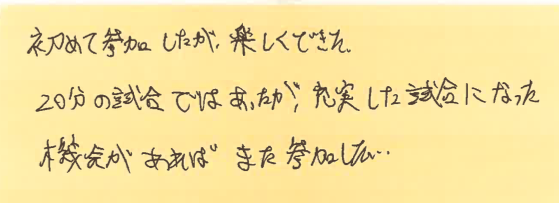 初めて参加したが、楽しくできた。
20分の試合ではあったが、充実した試合になった
機会があればまた参加したい。